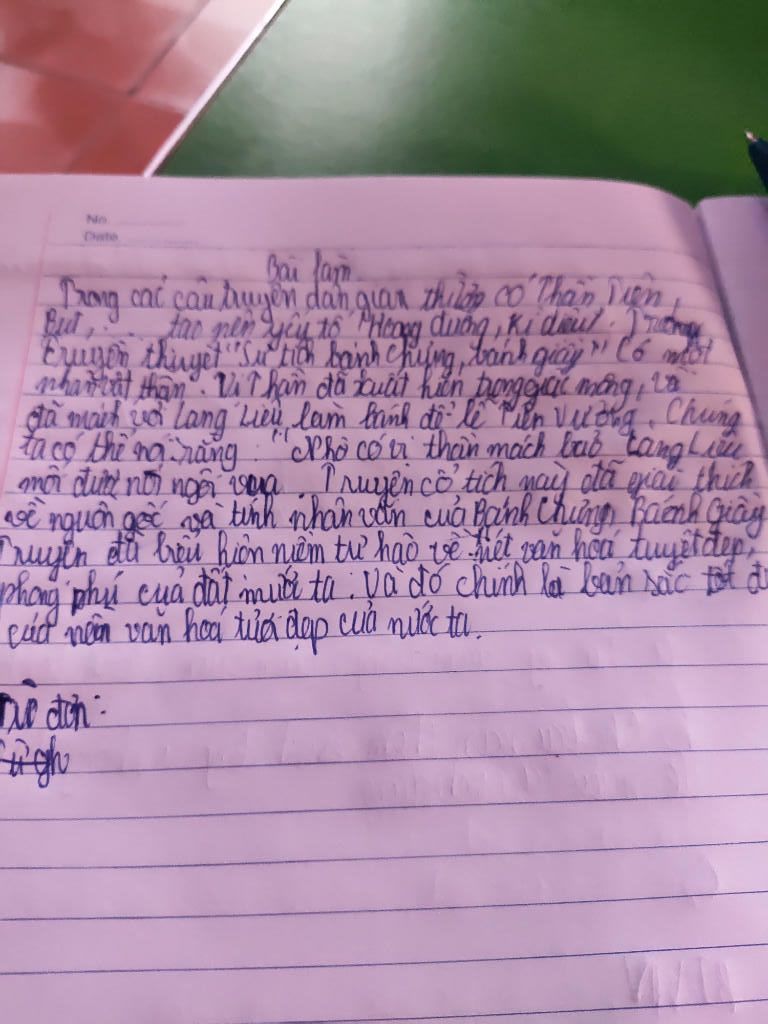 No.
Date
Bài làm
Trong các câu truyện dân gian thì lớp có Thần, Tiên,
Bụt,... tạo nên yếu tố "Hoang đường, kì diệu". Trong
truyện thuyết "Sự tích bánh chưng, bánh giầy" Có một
nhân vật thần. Vị Thần đã xuất hiện trong giấc mộng, và
đã mách với Lang Liêu làm bánh để lễ Tiên Vương. Chúng
ta có thể nói rằng: "Nhờ có vị thần mách bảo Lang Liêu
mới được nối ngôi vua. Truyện cổ tích này đã giải thích
về nguồn gốc và tính nhân văn của Bánh Chưng Bánh Giầy
Truyện đã biểu hiện niềm tự hào về nét văn hoá tuyệt đẹp,
phong phú của đất nước ta. Và đó chính là bản sắc tốt
của nền văn hoá tươi đẹp của nước ta.
Từ đơn: